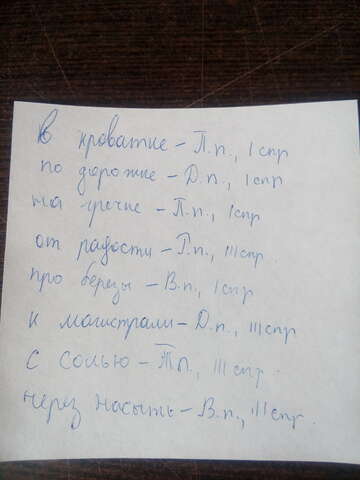 в кроватке - П.п., I спр
по дорожке - Д.п., I спр
на гречке - П.п., I спр
от радости - Р.п., III спр.
про березы - В.п., I спр
к магистрали - Д.п., III спр
с солью - Тп., III спр.
через насыпь - В.п., III спр.